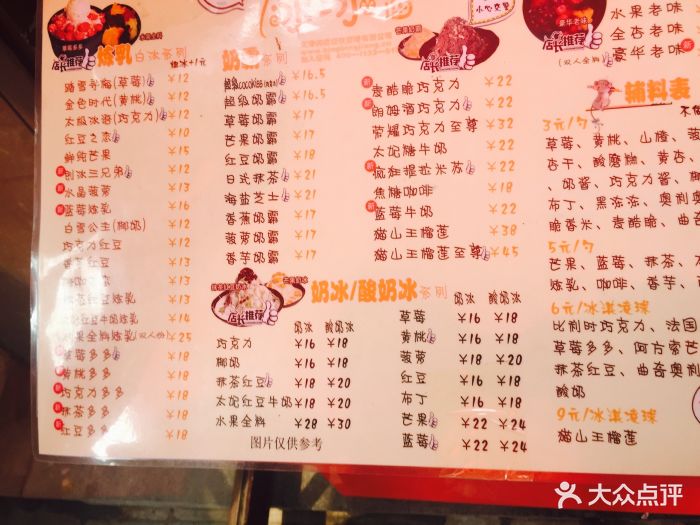 小心皮里
水果老味
全杏老味
豪华老味
店长推荐
炼乳白冰系列
炼冰+1元
踏雪寻梅(草莓) ¥12
金色时代(黄桃) ¥12
太极冰激(巧克力) ¥12
红豆之恋 ¥10
鲜炖芒果 ¥15
刨冰三兄弟 ¥12
水晶菠萝 ¥13
蓝莓炼乳 ¥16
白雪公主(椰奶) ¥12
巧克力红豆 ¥13
香芋红豆 ¥13
¥13
抹茶红豆炼乳 ¥13
红豆牛奶炼乳 ¥14
水果全料炼乳(双人份) ¥25
蓝莓多多 ¥18
黄桃多多 ¥18
巧克力多多 ¥18
抹茶多多 ¥18
红豆多多 ¥18
超级cocokiss ¥16.5
超级奶霸 ¥16.5
草莓奶霸 ¥17
芒果奶霸 ¥21
红豆奶霸 ¥18
日式抹茶 ¥21
海盐芝士 ¥21
香蕉奶霸 ¥17
菠萝奶霸 ¥17
香芋奶霸 ¥17
店长推荐
麦酷脆巧克力 ¥22
朗姆酒巧克力 ¥22
荣耀巧克力至尊 ¥32
太妃糖牛奶 ¥22
疯狂提拉米苏 ¥22
焦糖咖啡 ¥18
蓝莓牛奶 ¥22
猫山王榴莲 ¥38
猫山王榴莲至尊 ¥45
店长推荐
奶冰/酸奶冰系列
奶冰 酸奶冰
巧克力 ¥16 ¥18
椰奶 ¥16 ¥18
抹茶红豆 ¥18 ¥20
太妃红豆牛奶 ¥18 ¥20
水果全料 ¥28 ¥30
图片仅供参考
奶冰 酸奶冰
草莓 ¥16 ¥18
黄桃 ¥16 ¥18
菠萝 ¥18 ¥20
红豆 ¥16 ¥18
布丁 ¥16 ¥18
芒果 ¥22 ¥24
蓝莓 ¥22 ¥24
店长推荐
豪华老味
(双人全料)
辅料表
3元/勺
草莓、黄桃、山楂、菠
杏干、酸磨糊、黄杏、
、奶酱、巧克力酱、椰
布丁、黑凉凉、奥利
脆香米、麦酷脆、曲奇
5元/勺
芒果、蓝莓、抹茶、
炼乳、咖啡、香芋、
6元/冰淇凌球
比利时巧克力、法国
草莓多多、阿方索芒
抹茶红豆、曲奇奥利
酸奶
9元/冰淇凌球
猫山王榴莲
大众点评